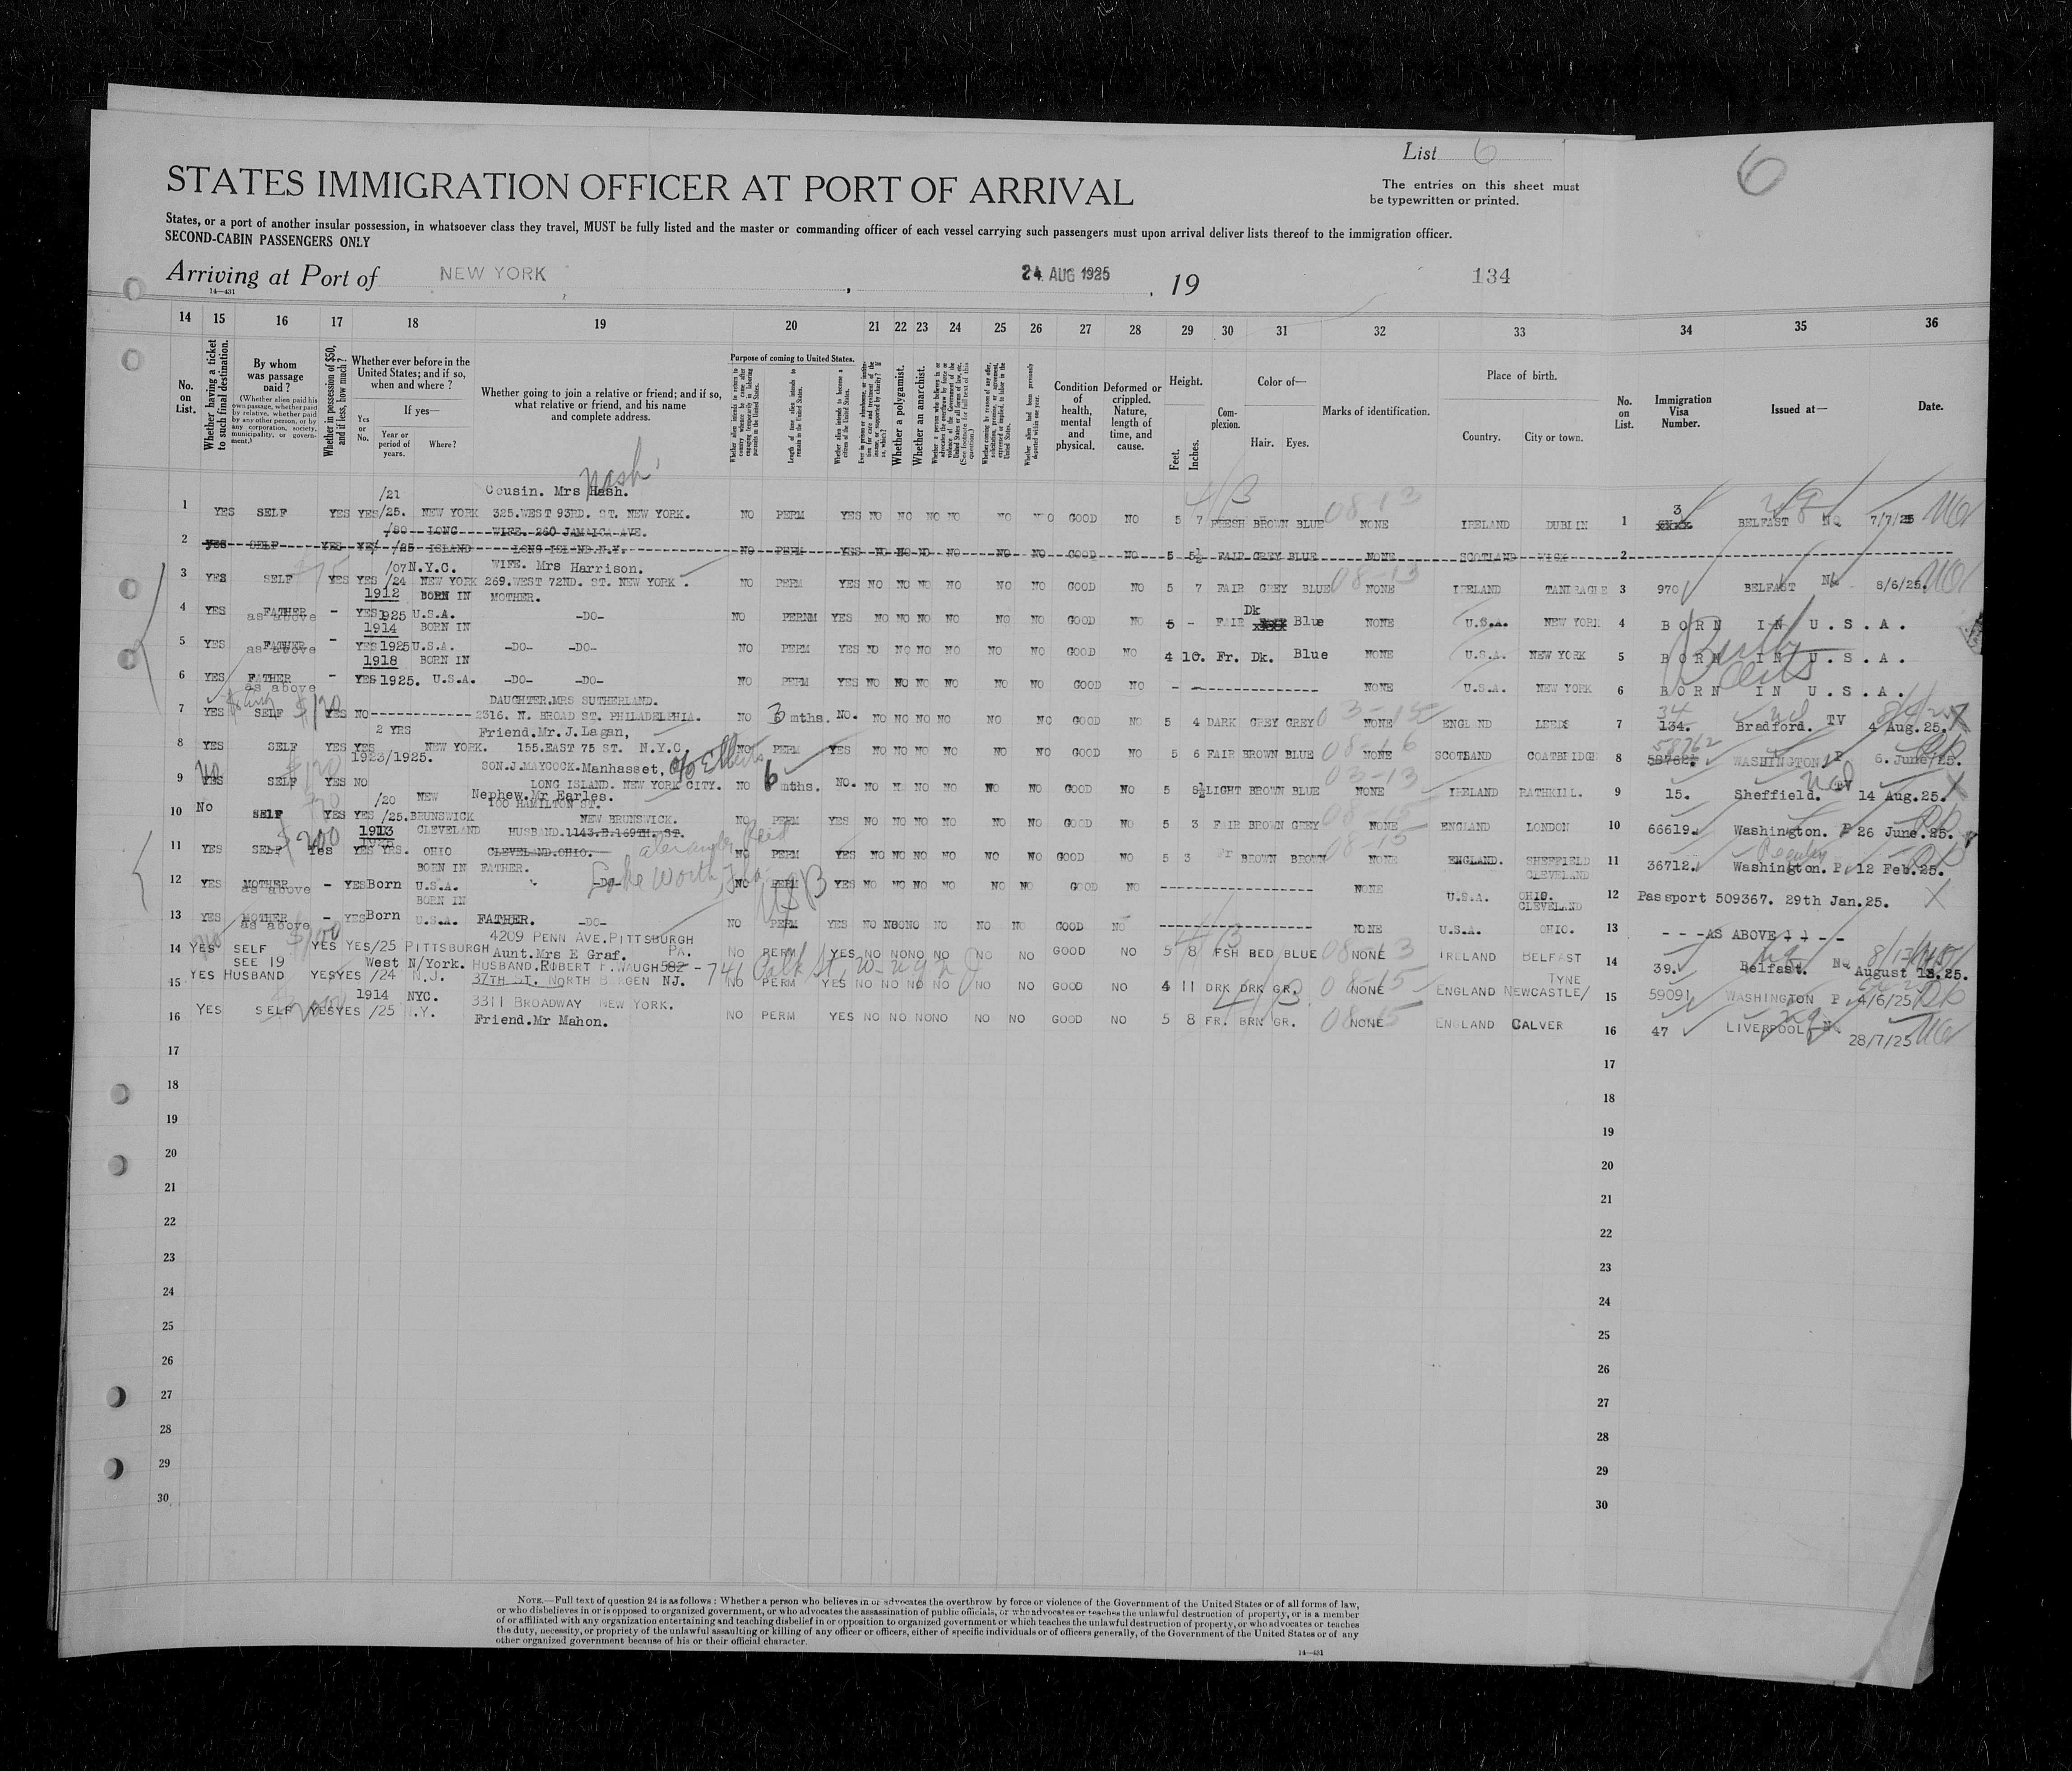 List 6
6
STATES IMMIGRATION OFFICER AT PORT OF ARRIVAL
The entries on this sheet must
be typewritten or printed.
States, or a port of another insular possession, in whatsoever class they travel, MUST be fully listed and the master or commanding officer of each vessel carrying such passengers must upon arrival deliver lists thereof to the immigration officer.
SECOND-CABIN PASSENGERS ONLY
Arriving at Port of NEW YORK, 24 AUG 1925, 19 134
14—431
14 15 16 17 18 19 20 21 22 23 24 25 26 27 28 29 30 31 32 33 34 35 36
No. on List.
Whether having a ticket to such final destination.
By whom was passage paid?
(Whether alien paid his own passage, whether paid by relative, whether paid by any other person, or by any corporation, society, municipality, or government.)
Whether in possession of $50, and if less, how much?
Whether ever before in the United States; and if so, when and where?
If yes—
Yes or No.
Year or period of years.
Where?
Whether going to join a relative or friend; and if so, what relative or friend, and his name and complete address.
Purpose of coming to United States.
Length of time alien intends to remain in the United States.
Whether alien intends to become a citizen of the United States.
Whether a polygamist.
Whether an anarchist.
Condition of health, mental and physical.
Deformed or crippled. Nature, length of time, and cause.
Height.
Feet. Inches.
Complexion.
Color of—
Hair. Eyes.
Marks of identification.
Place of birth.
Country. City or town.
No. on List.
Immigration Visa Number.
Issued at—
Date.
Nash
/21 Cousin. Mrs Hash.
1 YES SELF YES YES /25. NEW YORK 325.WEST 93RD. ST. NEW YORK. NO PERM YES NO NO NO NO NO NO GOOD NO 5 7 FRESH BROWN BLUE 08-13 NONE IRELAND DUBLIN 1 3 BELFAST NQ 7/7/25
/20 LONG WIFE. 260 JAMAICA AVE.
2 YES SELF YES YES /25 ISLAND LONG ISLAND N.Y. NO PERM YES NO NO NO NO NO NO GOOD NO 5 5½ FAIR GREY BLUE NONE SCOTLAND WICK 2
/07 N.Y.C. WIFE. Mrs Harrison.
3 YES SELF YES YES /24 NEW YORK 269.WEST 72ND. ST. NEW YORK. NO PERM YES NO NO NO NO NO NO GOOD NO 5 7 FAIR GREY BLUE 08-13 NONE IRELAND TANDRAGHE 3 970 BELFAST 8/6/25.
1912 BORN IN MOTHER.
4 YES FATHER as above - YES 1925 U.S.A. -DO- NO PERNM YES NO NO NO NO NO NO GOOD NO 5 - FAIR Dk Blue NONE U.S.A. NEW YORK 4 BORN IN U.S.A.
1914 BORN IN
5 YES FATHER as above - YES 1925 U.S.A. -DO- -DO- NO PERM YES NO NO NO NO NO NO GOOD NO 4 10. Fr. Dk. Blue NONE U.S.A. NEW YORK 5 BORN IN U.S.A.
1918 BORN IN
6 YES FATHER as above - YES 1925. U.S.A. -DO- -DO- NO PERM YES NO NO NO NO NO NO GOOD NO NONE U.S.A. NEW YORK 6 BORN IN U.S.A.
DAUGHTER.MRS SUTHERLAND.
7 YES SELF $120 YES NO 2316. N. BROAD ST. PHILADELPHIA. NO 3 mths. No. NO NO NO NO NO NO GOOD NO 5 4 DARK GREY GREY 03-15 NONE ENGLAND LEEDS 7 34 134. Bradford. TV 4 Aug.25.
2 YRS Friend.Mr.J.Lagan,
8 YES SELF YES YES 1923/1925. NEW YORK. 155.EAST 75 ST. N.Y.C. NO PERM YES NO NO NO NO NO NO GOOD NO 5 6 FAIR BROWN BLUE 08-16 NONE SCOTLAND COATBRIDGE 8 58762 WASHINGTON P 6. June/25.
SON.J.MAYCOCK.Manhasset,
9 YES SELF YES NO LONG ISLAND. NEW YORK CITY. NO 6 mths. No. NO NO NO NO NO NO GOOD NO 5 8½ LIGHT BROWN BLUE 03-13 NONE IRELAND RATHKILL. 9 15. Sheffield. TV 14 Aug.25.
/20 NEW Nephew.Mr Earles.
100 HAMILTON ST.
10 No SELF YES YES /25. BRUNSWICK NEW BRUNSWICK. NO PERM YES NO NO NO NO NO NO GOOD NO 5 3 FAIR BROWN GREY 08-15 NONE ENGLAND LONDON 10 66619. Washington. P 26 June.25.
1913 CLEVELAND HUSBAND.1143.E.169TH. ST.
11 YES SELF $200 Yes YES YES. OHIO CLEVELAND.OHIO. NO PERM YES NO NO NO NO NO NO GOOD NO 5 3 Fr BROWN BROWN 08-15 NONE ENGLAND. SHEFFIELD 11 36712. Washington. P. 12 Feb.25.
BORN IN FATHER. Lake Worth
12 YES MOTHER as above - YES Born U.S.A. -DO- NO PERM YES NO NO NO NO NO NO GOOD NO NONE U.S.A. CLEVELAND OHIO. 12 Passport 509367. 29th Jan.25.
BORN IN
13 YES MOTHER as above - YES Born U.S.A. FATHER. -DO- NO PERM YES NO NO NO NO NO NO GOOD NO NONE U.S.A. CLEVELAND OHIO. 13 - - -AS ABOVE - - -
4209 PENN AVE.PITTSBURGH
14 YES SELF YES YES/25 PITTSBURGH Aunt.Mrs E Graf. PA. NO PERM YES NO NO NO NO NO NO GOOD NO 5 8 FSH RED BLUE 08-13 NONE IRELAND BELFAST 14 39. Belfast. August 13.25.
SEE 19 West N/York. HUSBAND.ROBERT F.WAUGH 582 - 741
15 YES HUSBAND YES YES /24 N.J. 37TH ST. NORTH BERGEN NJ. NO PERM YES NO NO NO NO NO NO GOOD NO 4 11 DRK DRK GR. 08-15 NONE ENGLAND NEWCASTLE/TYNE 15 59091 WASHINGTON P 4/6/25
1914 NYC. 3311 BROADWAY NEW YORK.
16 YES SELF YES YES /25 N.Y. Friend.Mr Mahon. NO PERM YES NO NO NO NO NO NO GOOD NO 5 8 FR. BRN GR. 08-15 NONE ENGLAND CALVER 16 47 LIVERPOOL 28/7/25
17 17
18 18
19 19
20 20
21 21
22 22
23 23
24 24
25 25
26 26
27 27
28 28
29 29
30 30
NOTE.—Full text of question 24 is as follows: Whether a person who believes in or advocates the overthrow by force or violence of the Government of the United States or of all forms of law,
or who disbelieves in or is opposed to organized government, or who advocates the assassination of public officials, or who advocates or teaches the unlawful destruction of property, or is a member
of or affiliated with any organization entertaining and teaching disbelief in or opposition to organized government or which teaches the unlawful destruction of property, or who advocates or teaches
the duty, necessity, or propriety of the unlawful assaulting or killing of any officer or officers, either of specific individuals or of officers generally, of the Government of the United States or of any
other organized government because of his or their official character.
14—431